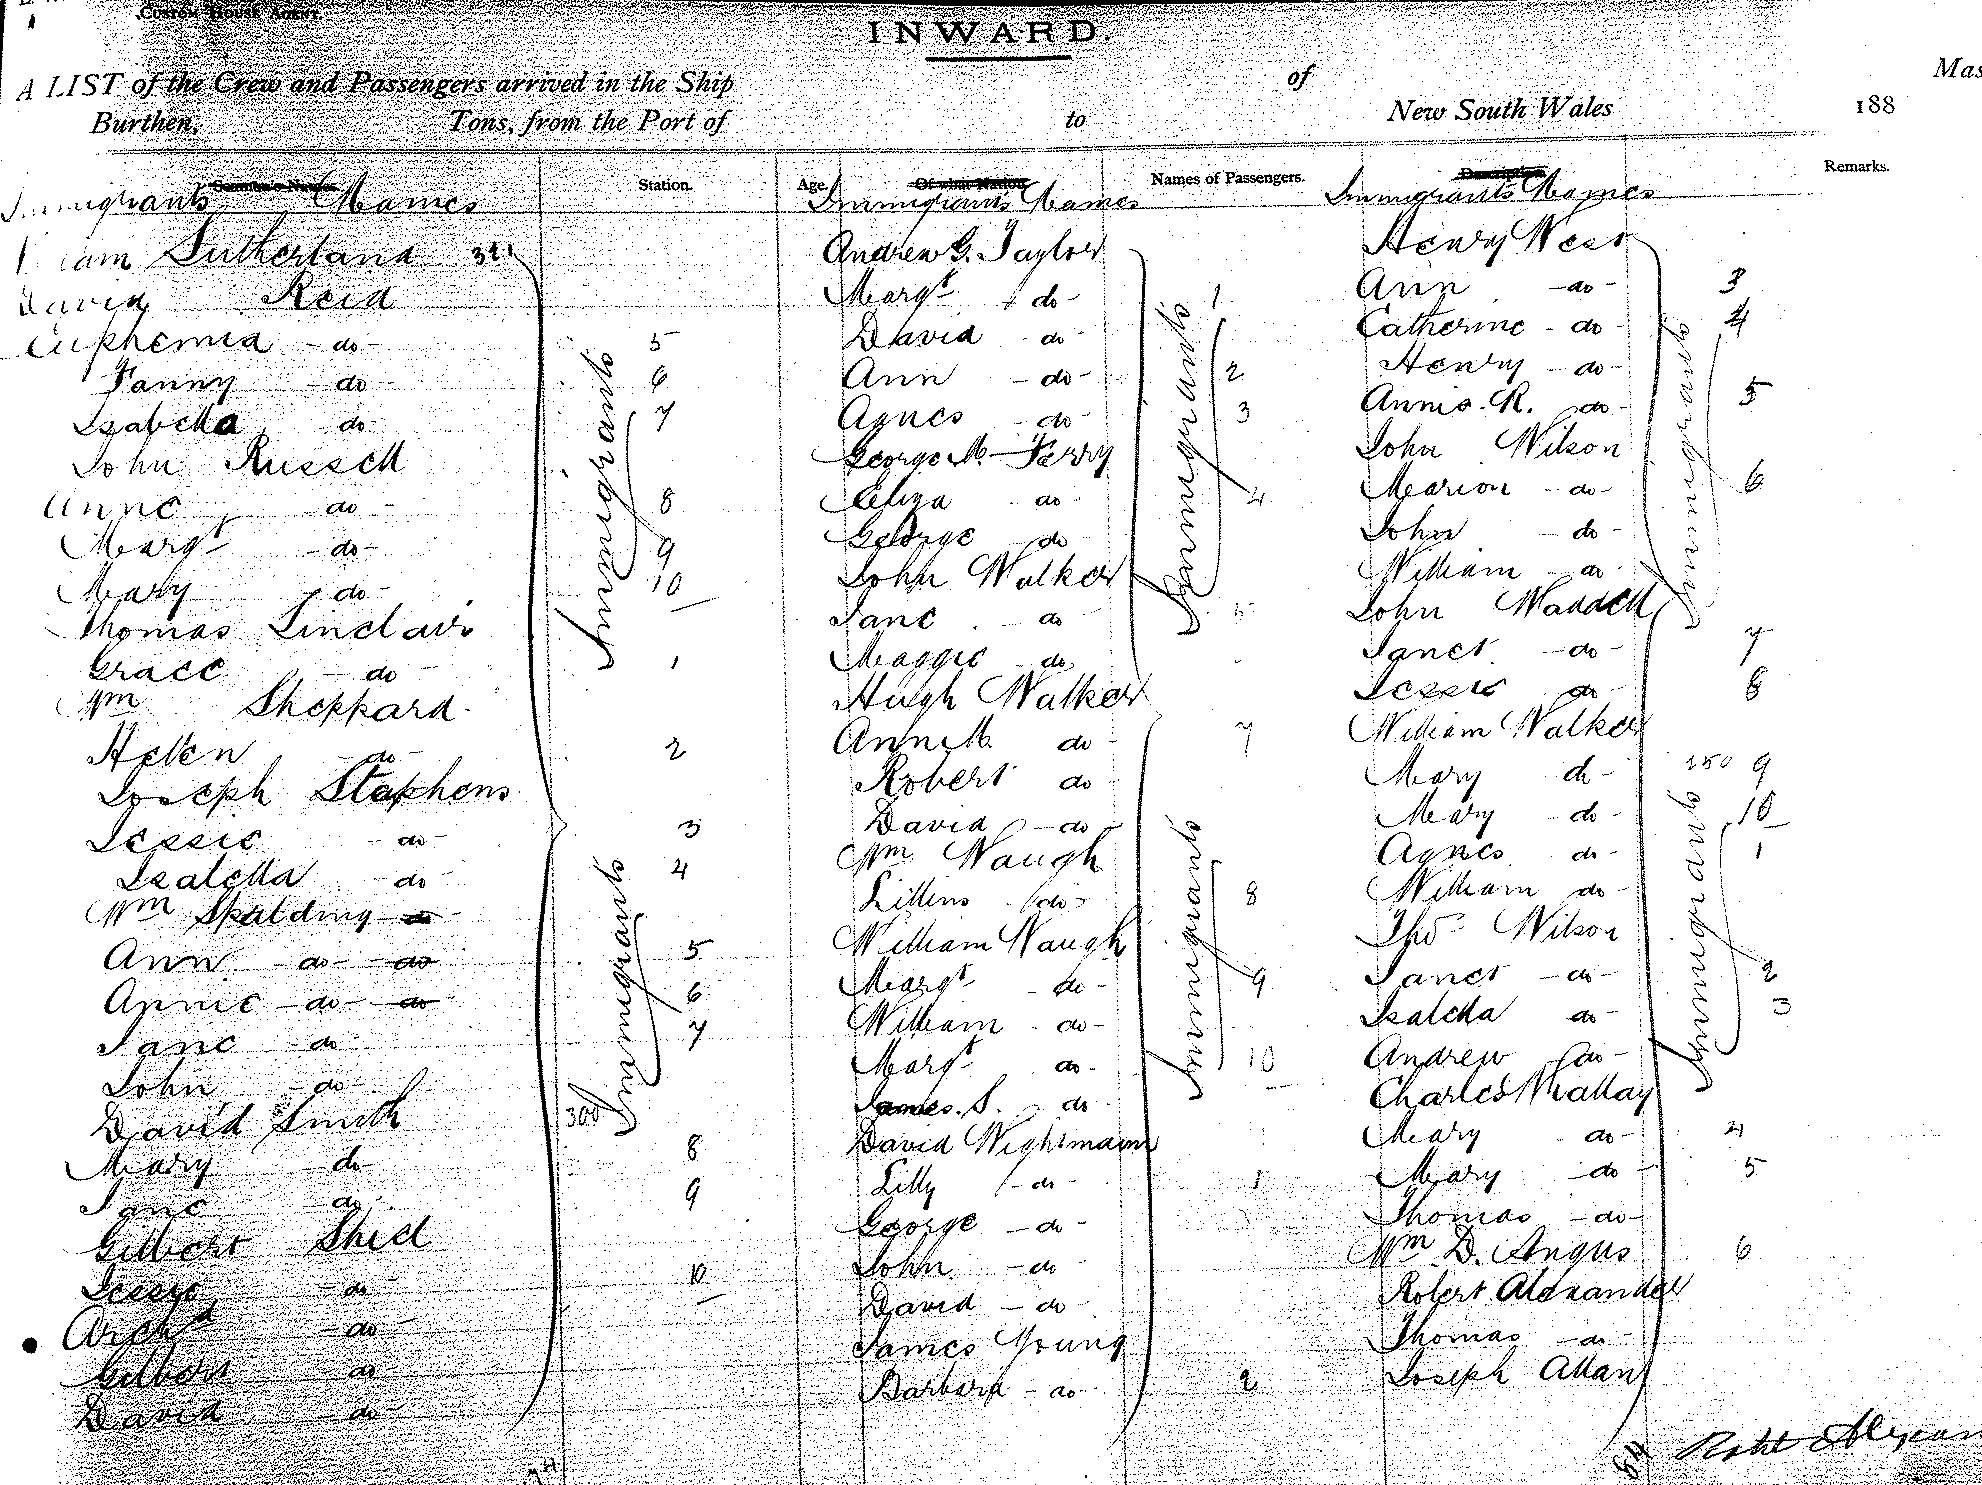 Custom House Agent.
INWARD.
A LIST of the Crew and Passengers arrived in the Ship of Mas
Burthen, Tons, from the Port of to New South Wales 188
Station. Age. Of what Nation Names of Passengers. Description Remarks.
Immigrants Names
iam Sutherland
David Reid
Euphemia - do - 5
Fanny - do 6
Isabella do - 7
John Russell
Anne do - 8
Margt - do - 9
Mary do - 10
Thomas Sinclair
Grace do - 1
Wm Sheppard
Helen - do - 2
Joseph Stephens
Jessie - do - 3
Isabella - do - 4
Wm Spalding do
Ann - do - do 5
Annie - do - do 6
Jane - do - 7
John - do -
David Smith 300
Mary do - 8
Jane do 9
Gilbert Shiel
Jessie do 10
Archd - do -
Gilbert do
David - do -
Immigrants
Immigrants
Immigrants Names
Andrew G. Taylor
Margt do - 1
David do -
Ann - do - 2
Agnes - do - 3
George M. Ferry
Eliza do - 4
George do
John Walker
Jane - do
Maggie do
Hugh Walker
Ann M. do - 7
Robert do
David - do -
Wm Waugh
Lillius do - 8
William Waugh
Margt do - 9
William - do -
Margt do - 10
James. S. do
David Wightman
Lilly - do - 1
George - do -
John - do -
David - do -
James Young
Barbara - do - 2
Immigrants
Immigrants
Immigrants Names
Henry West
Ann - do - 3
Catherine - do - 4
Henry - do -
Annie. R. do - 5
John Wilson
Marion - do - 6
John - do -
William - do -
John Waddell
Janet - do - 7
Jessie do - 8
William Walker
Mary do - 250 9
Mary do - 10
Agnes do - 1
William do -
Thos Wilson
Janet - do - 2
Isabella do - 3
Andrew do -
Charles Whallay
Mary do - 4
Mary - do - 5
Thomas - do -
Wm D. Angus 6
Robert Alexander
Thomas - do -
Joseph Allan
Immigrants
Immigrants
84
Robt Alexan